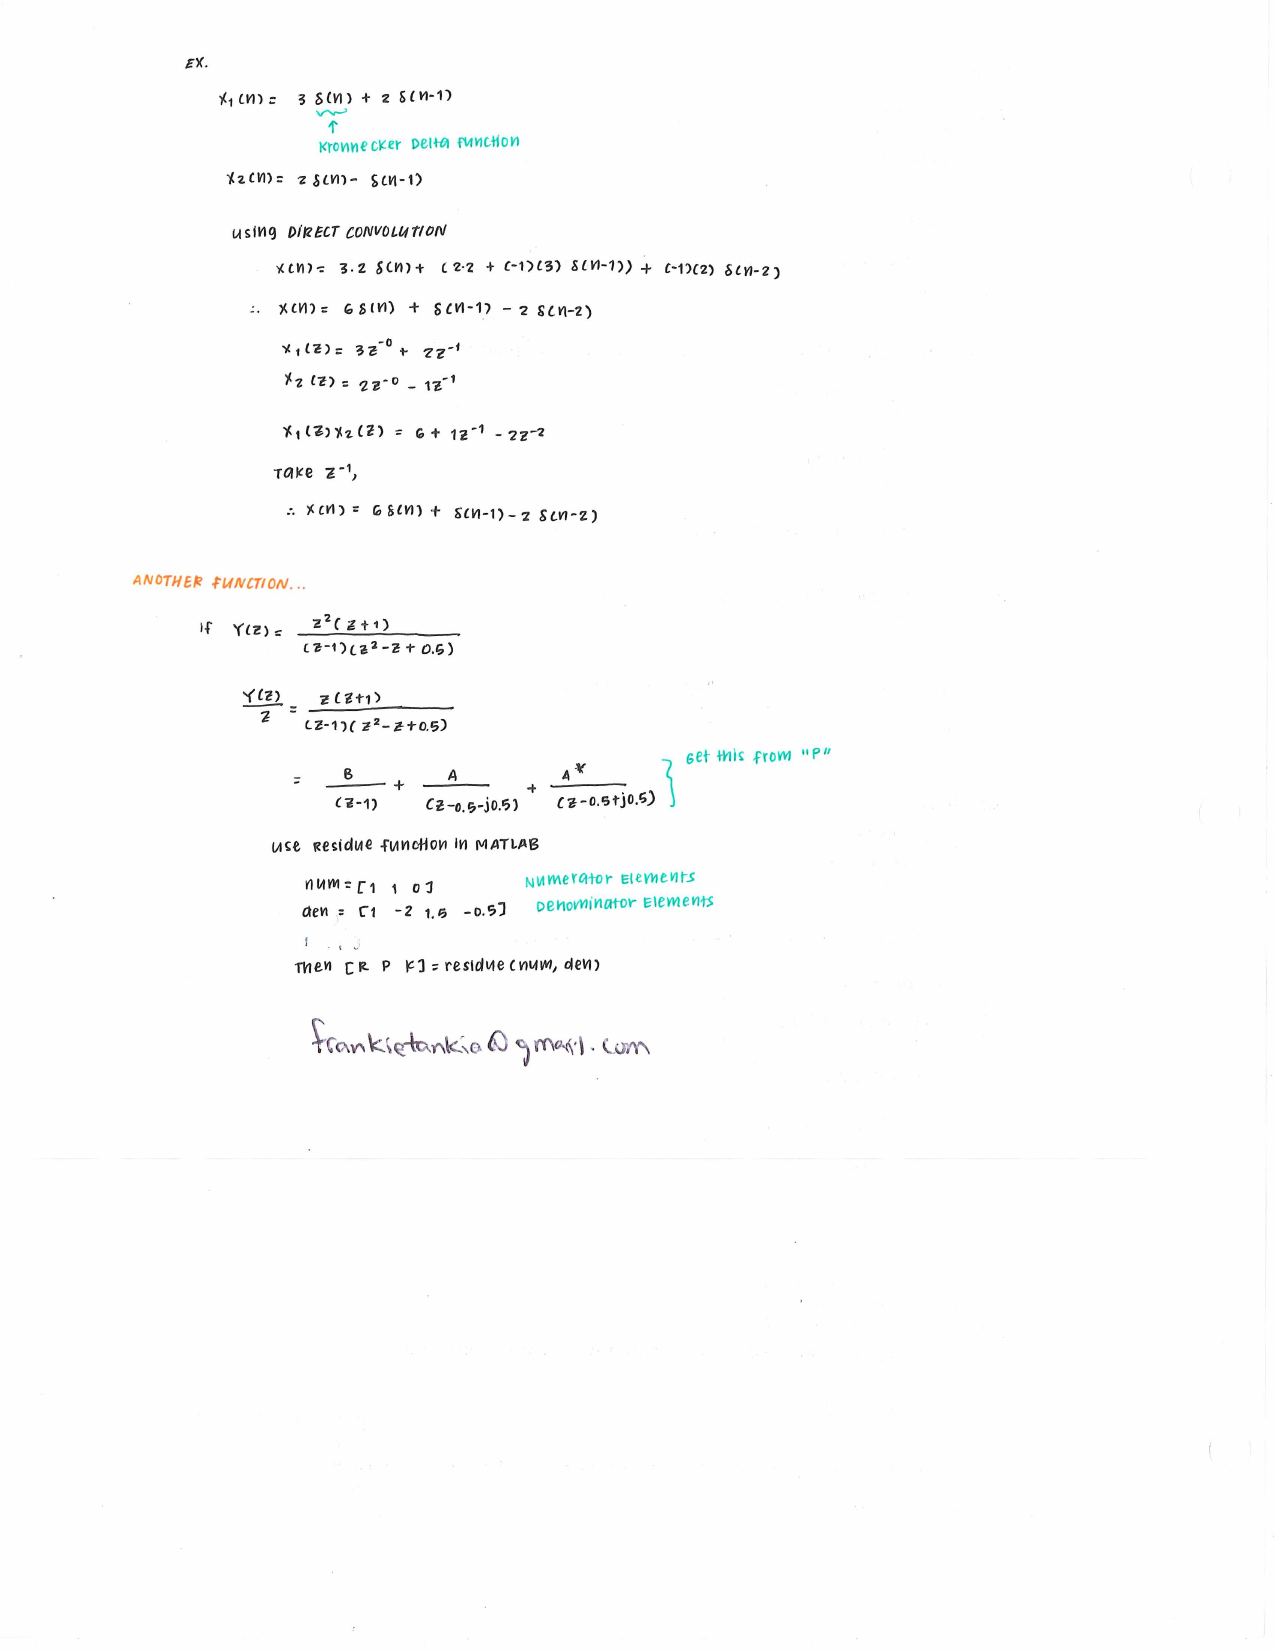 EX.
x₁(n) = 3 δ(n) + 2 δ(n-1)
↑
Kronnecker Delta function
x₂(n) = 2 δ(n) - δ(n-1)
using DIRECT CONVOLUTION
x(n) = 3·2 δ(n) + (2·2 + (-1)(3) δ(n-1)) + (-1)(2) δ(n-2)
∴ x(n) = 6 δ(n) + δ(n-1) - 2 δ(n-2)
x₁(z) = 3z⁻⁰ + 2z⁻¹
x₂(z) = 2z⁻⁰ - 1z⁻¹
x₁(z)x₂(z) = 6 + 1z⁻¹ - 2z⁻²
Take z⁻¹,
∴ x(n) = 6 δ(n) + δ(n-1) - 2 δ(n-2)
ANOTHER FUNCTION...
if Y(z) = z²(z+1) / (z-1)(z²-z+0.5)
Y(z)/z = z(z+1) / (z-1)(z²-z+0.5)
= B/(z-1) + A/(z-0.5-j0.5) + A*/(z-0.5+j0.5) } Get this from "P"
use Residue function in MATLAB
num = [1 1 0] Numerator Elements
den = [1 -2 1.5 -0.5] Denominator Elements
Then [R P K] = residue(num, den)
frankietankie@gmail.com